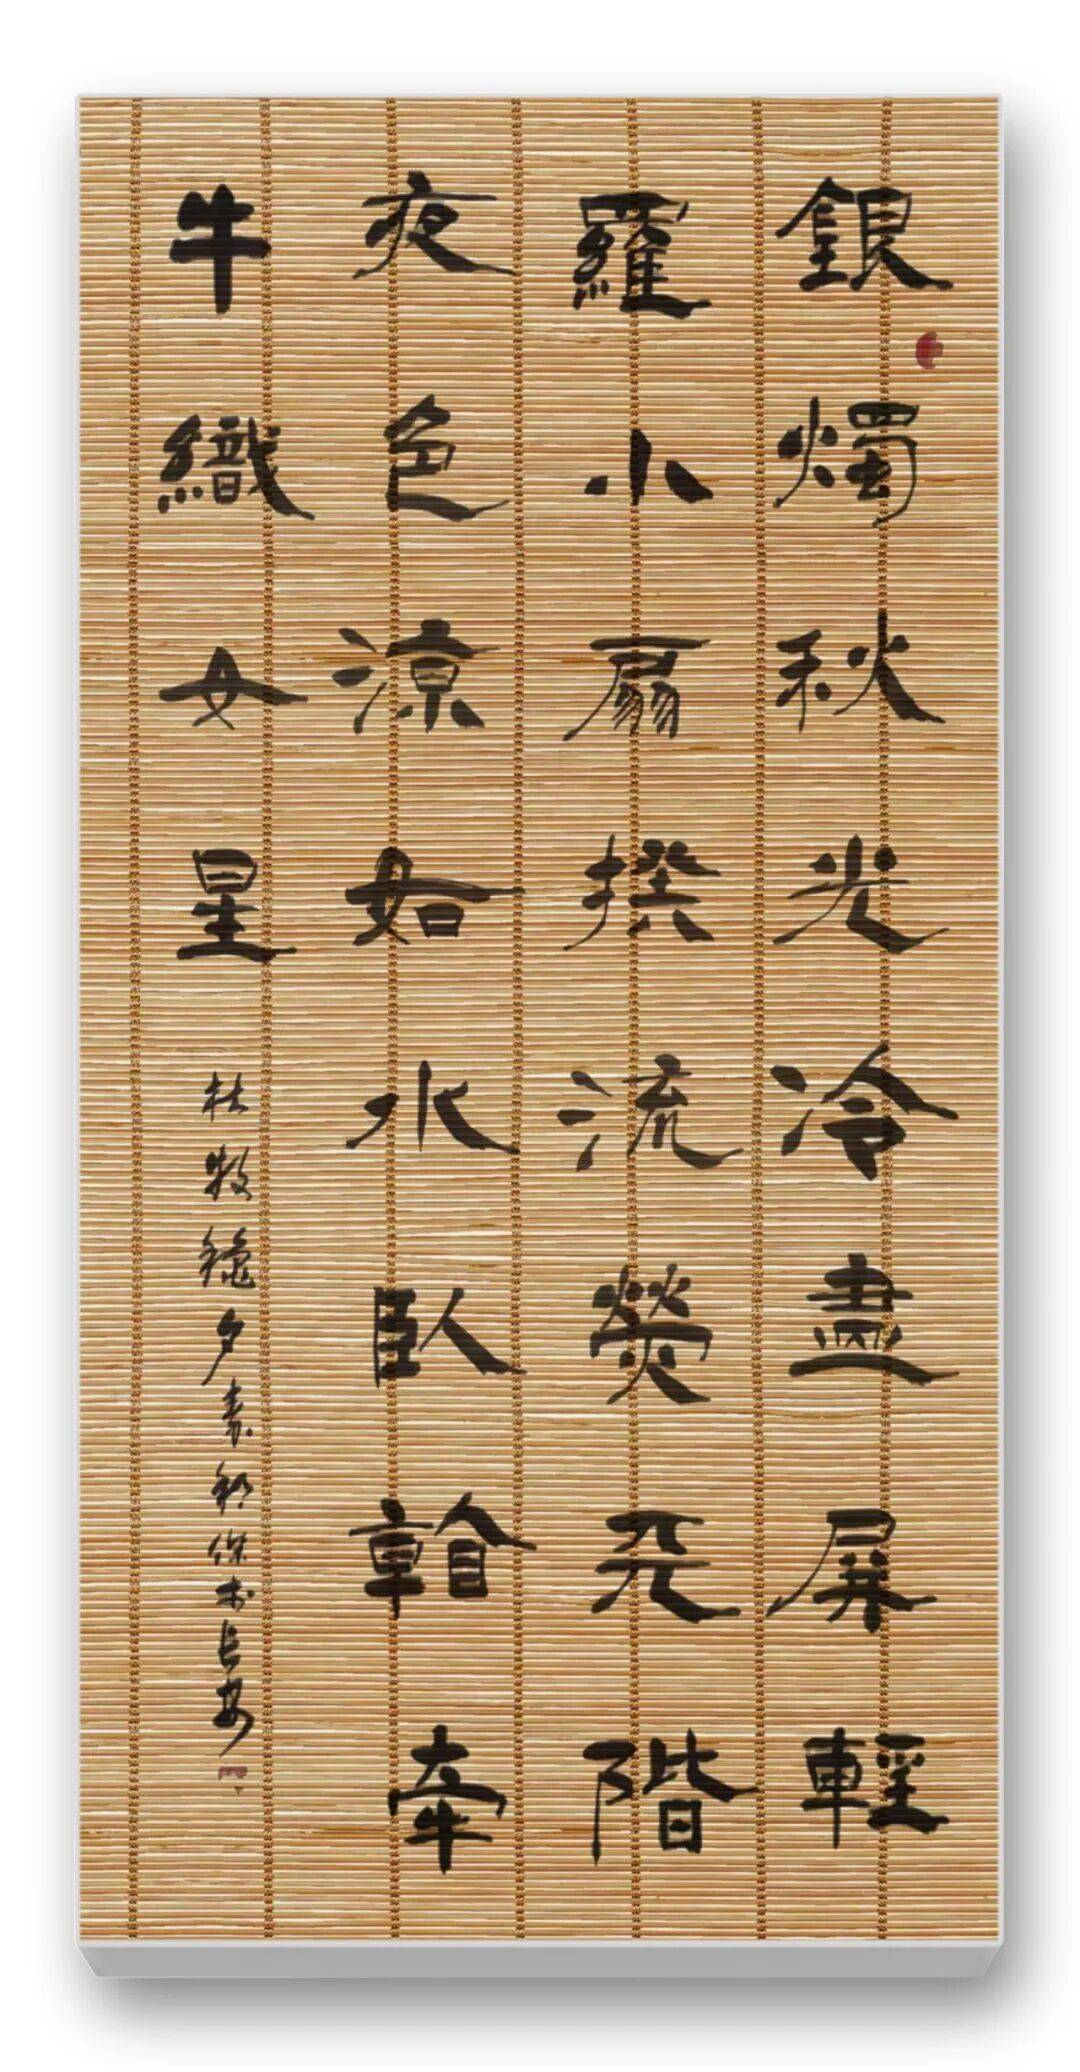 銀燭秋光冷畫屏輕
羅小扇撲流熒天階
夜色涼如水臥看牽
牛織女星
杜牧龝夕袁 長安